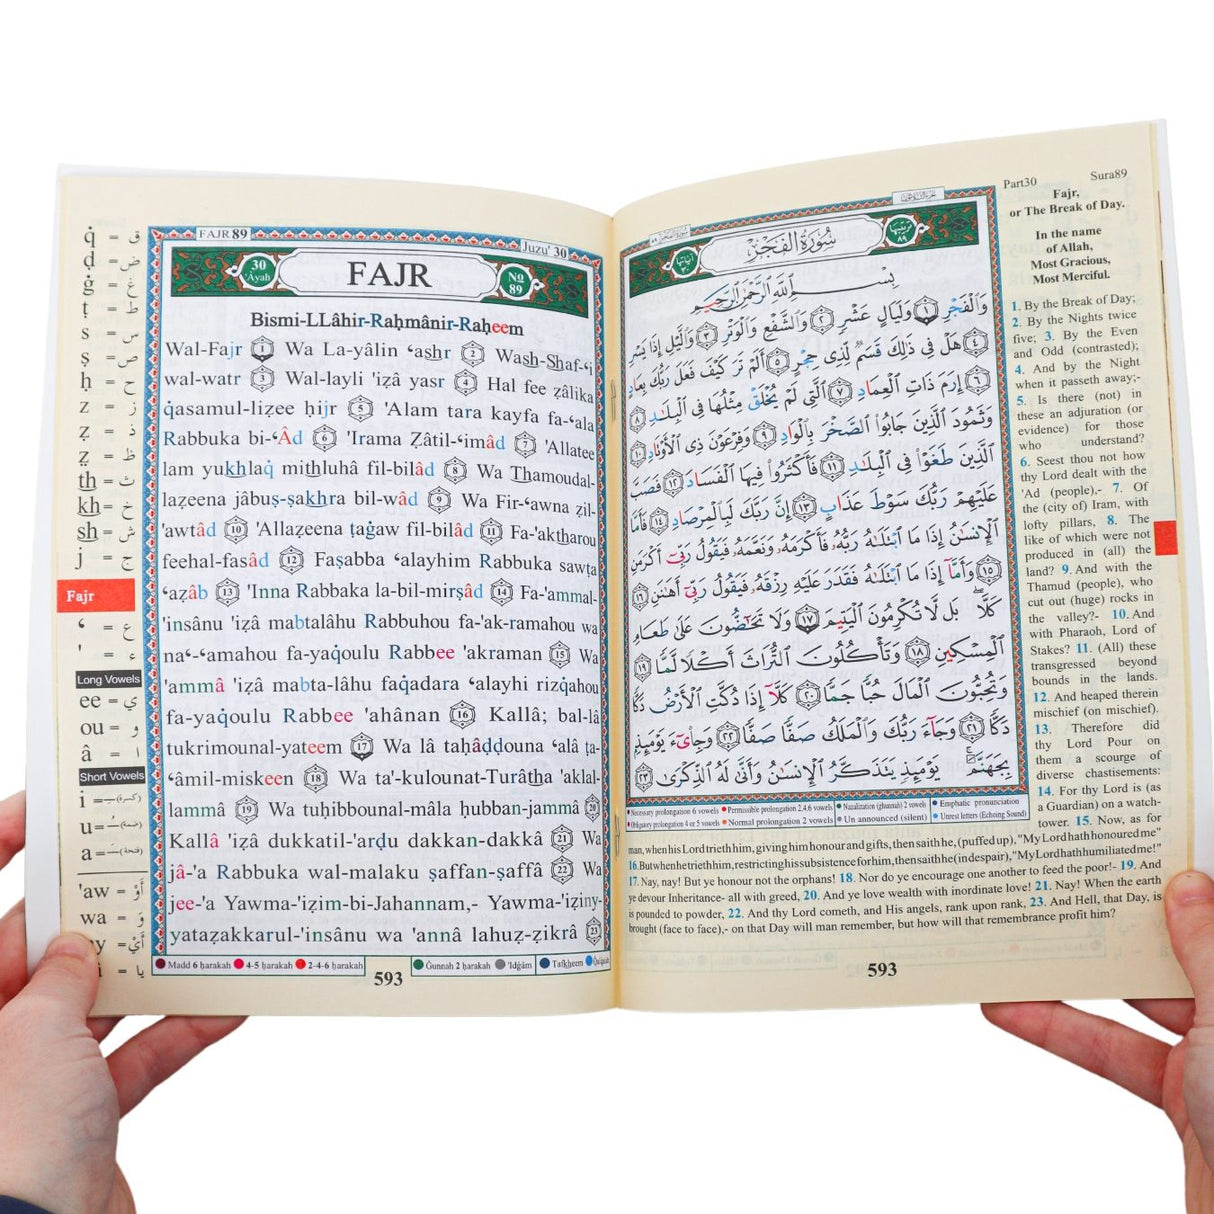 FAJR 89
Juzu' 30
30
'Âyah
FAJR
No
89
Bismi-LLâhir-Raḥmânir-Raḥeem
Wal-Fajr 1 Wa La-yâlin ‘ashr 2 Wash-Shaf-‘i
wal-watr 3 Wal-layli 'iẓâ yasr 4 Hal fee ẓâlika
q̇asamul-liẓee ḥijr 5 'Alam tara kayfa fa-‘ala
Rabbuka bi-‘Âd 6 'Irama Ẓâtil-‘imâd 7 'Allatee
lam yukhlaq̇ mithluhâ fil-bilâd 8 Wa Thamoudal-
laẓeena jâbuṣ-ṣakhra bil-wâd 9 Wa Fir-‘awna ẓil-
'awtâd 10 'Allaẓeena ṭaġaw fil-bilâd 11 Fa-'aktharou
feehal-fasâd 12 Faṣabba ‘alayhim Rabbuka sawṭa
‘aẓâb 13 'Inna Rabbaka la-bil-mirṣâd 14 Fa-'ammal-
'insânu 'iẓâ mabtalâhu Rabbuhou fa-'ak-ramahou wa
na‘-‘amahou fa-yaq̇oulu Rabbee 'akraman 15 Wa
'ammâ 'iẓâ mabta-lâhu faq̇adara ‘alayhi rizq̇ahou
fa-yaq̇oulu Rabbee 'ahânan 16 Kallâ; bal-lâ
tukrimounal-yateem 17 Wa lâ taḥâḍḍouna ‘alâ ṭa-
‘âmil-miskeen 18 Wa ta'-kulounat-Turâtha 'aklal-
lammâ 19 Wa tuḥibbounal-mâla ḥubban-jammâ 20
Kallâ 'iẓâ dukkatil-'arḍu dakkan-dakkâ 21 Wa
jâ-'a Rabbuka wal-malaku ṣaffan-ṣaffâ 22 Wa
jee-'a Yawma-'iẓim-bi-Jahannam,- Yawma-'iẓiny-
yataẓakkarul-'insânu wa 'annâ lahuẓ-ẓikrâ 23
q̇ = ق
ḍ = ض
ġ = غ
ṭ = ط
s = س
ṣ = ص
ḥ = ح
z = ز
ẓ = ذ
ẓ̤ = ظ
th = ث
kh = خ
sh = ش
j = ج
Fajr
‘ = ع
' = ء
Long Vowels
ee = ي
ou = و
â = ا
Short Vowels
i = (كسرة)
u = (ضمة)
a = (فتحة)
'aw = أَوْ
wa = وَ
ay = أَيْ
â = يا
Madd 6 ḥarakah 4-5 ḥarakah 2-4-6 ḥarakah Ġunnah 2 ḥarakah 'Idġâm Tafkheem Q̇alq̇alah
593
سُورَةُ الْفَجْرِ
بِسْمِ اللَّهِ الرَّحْمَٰنِ الرَّحِيمِ
وَالْفَجْرِ ١ وَلَيَالٍ عَشْرٍ ٢ وَالشَّفْعِ وَالْوَتْرِ ٣ وَاللَّيْلِ إِذَا يَسْرِ
٤ هَلْ فِي ذَٰلِكَ قَسَمٌ لِّذِي حِجْرٍ ٥ أَلَمْ تَرَ كَيْفَ فَعَلَ رَبُّكَ بِعَادٍ
٦ إِرَمَ ذَاتِ الْعِمَادِ ٧ الَّتِي لَمْ يُخْلَقْ مِثْلُهَا فِي الْبِلَادِ ٨
وَثَمُودَ الَّذِينَ جَابُوا الصَّخْرَ بِالْوَادِ ٩ وَفِرْعَوْنَ ذِي الْأَوْتَادِ ١٠
الَّذِينَ طَغَوْا فِي الْبِلَادِ ١١ فَأَكْثَرُوا فِيهَا الْفَسَادَ ١٢ فَصَبَّ
عَلَيْهِمْ رَبُّكَ سَوْطَ عَذَابٍ ١٣ إِنَّ رَبَّكَ لَبِالْمِرْصَادِ ١٤ فَأَمَّا
الْإِنسَانُ إِذَا مَا ابْتَلَاهُ رَبُّهُ فَأَكْرَمَهُ وَنَعَّمَهُ فَيَقُولُ رَبِّي أَكْرَمَنِ
١٥ وَأَمَّا إِذَا مَا ابْتَلَاهُ فَقَدَرَ عَلَيْهِ رِزْقَهُ فَيَقُولُ رَبِّي أَهَانَنِ ١٦
كَلَّا ۖ بَل لَّا تُكْرِمُونَ الْيَتِيمَ ١٧ وَلَا تَحَاضُّونَ عَلَىٰ طَعَامِ
الْمِسْكِينِ ١٨ وَتَأْكُلُونَ التُّرَاثَ أَكْلًا لَّمًّا ١٩
وَتُحِبُّونَ الْمَالَ حُبًّا جَمًّا ٢٠ كَلَّا إِذَا دُكَّتِ الْأَرْضُ دَكًّا
دَكًّا ٢١ وَجَاءَ رَبُّكَ وَالْمَلَكُ صَفًّا صَفًّا ٢٢ وَجِيءَ يَوْمَئِذٍ
بِجَهَنَّمَ ۚ يَوْمَئِذٍ يَتَذَكَّرُ الْإِنسَانُ وَأَنَّىٰ لَهُ الذِّكْرَىٰ ٢٣
Necessary prolongation 6 vowels Permissible prolongation 2,4,6 vowels Nazalization (ghunnah) 2 vowels Emphatic pronunciation
Obligatory prolongation 4 or 5 vowels Normal prolongation 2 vowels Un announced (silent) Unrest letters (Echoing Sound)
Part30
Sura89
Fajr,
or The Break of Day.
In the name
of Allah,
Most Gracious,
Most Merciful.
1. By the Break of Day;
2. By the Nights twice
five; 3. By the Even
and Odd (contrasted);
4. And by the Night
when it passeth away;-
5. Is there (not) in
these an adjuration (or
evidence) for those
who understand?
6. Seest thou not how
thy Lord dealt with the
'Ad (people),- 7. Of
the (city of) Iram, with
lofty pillars, 8. The
like of which were not
produced in (all) the
land? 9. And with the
Thamud (people), who
cut out (huge) rocks in
the valley?- 10. And
with Pharaoh, Lord of
Stakes? 11. (All) these
transgressed beyond
bounds in the lands.
12. And heaped therein
mischief (on mischief).
13. Therefore did
thy Lord Pour on
them a scourge of
diverse chastisements:
14. For thy Lord is (as
a Guardian) on a watch-
tower. 15. Now, as for
man, when his Lord trieth him, giving him honour and gifts, then saith he, (puffed up), "My Lord hath honoured me"
16. But when he trieth him, restricting his subsistence for him, then saith he (in despair), "My Lord hath humiliated me!"
17. Nay, nay! But ye honour not the orphans! 18. Nor do ye encourage one another to feed the poor!- 19. And
ye devour Inheritance- all with greed, 20. And ye love wealth with inordinate love! 21. Nay! When the earth
is pounded to powder, 22. And thy Lord cometh, and His angels, rank upon rank, 23. And Hell, that Day, is
brought (face to face),- on that Day will man remember, but how will that remembrance profit him?
593